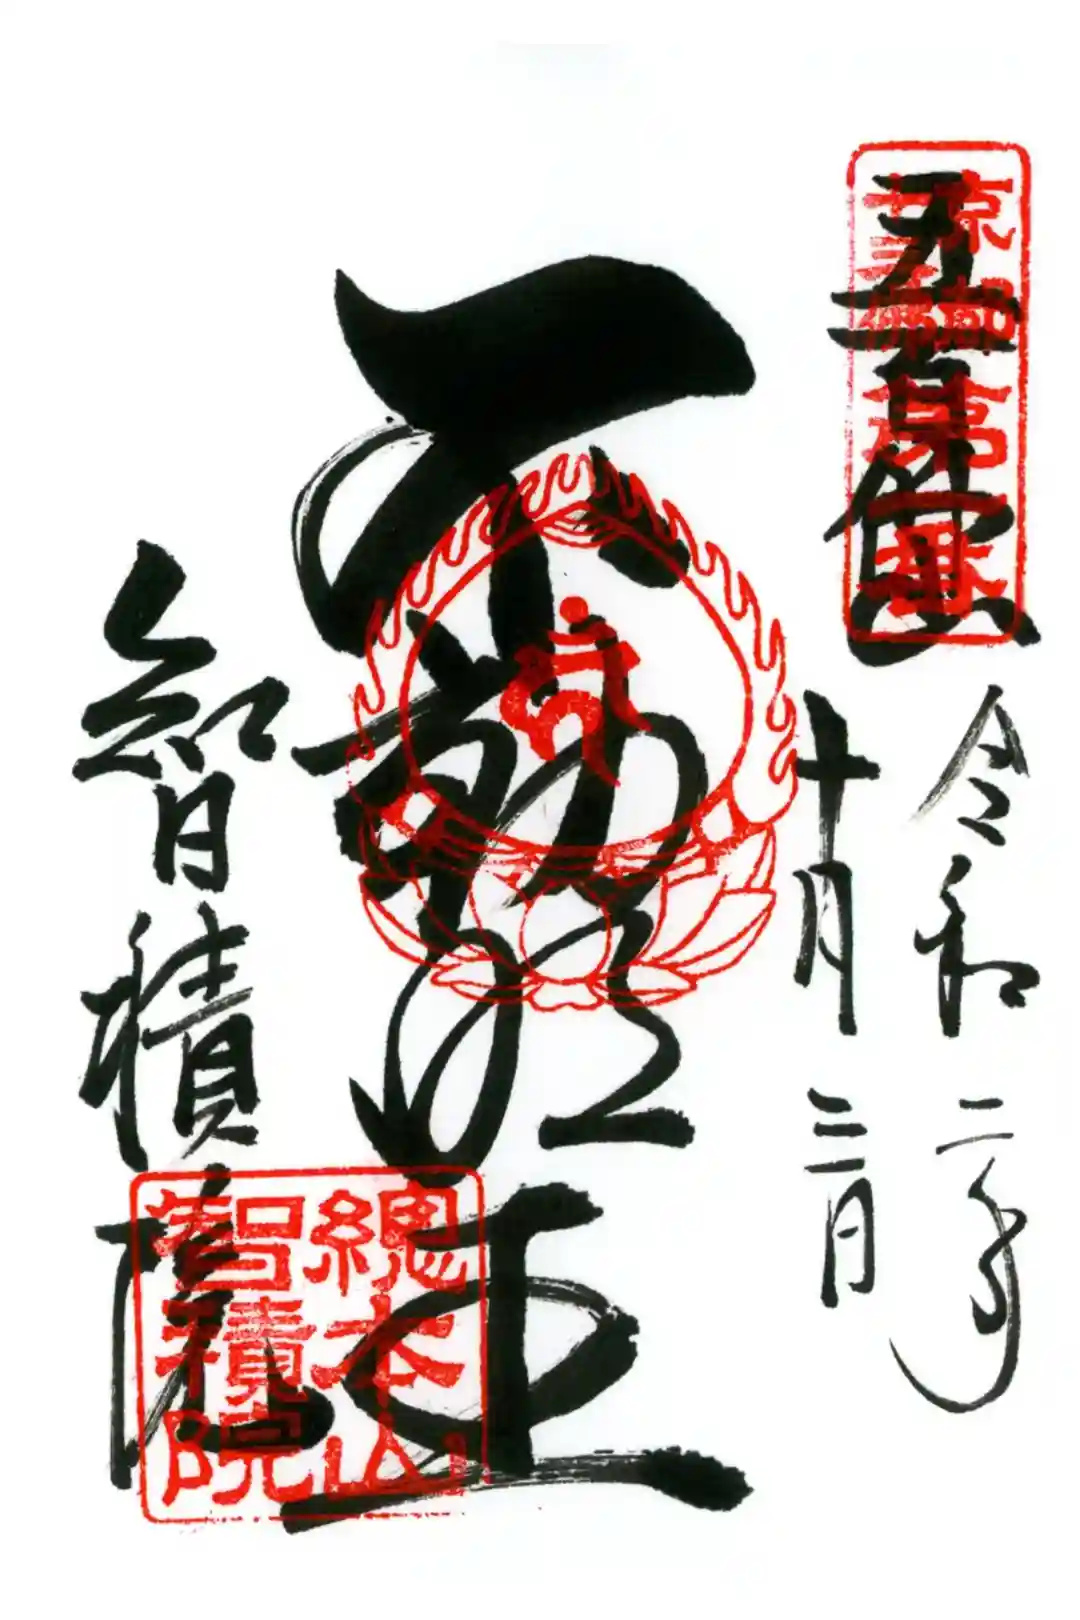 五百佛山
京都
十三佛
第一番
令和二年
十月三日
不動明王
智積院
總本山
智積院